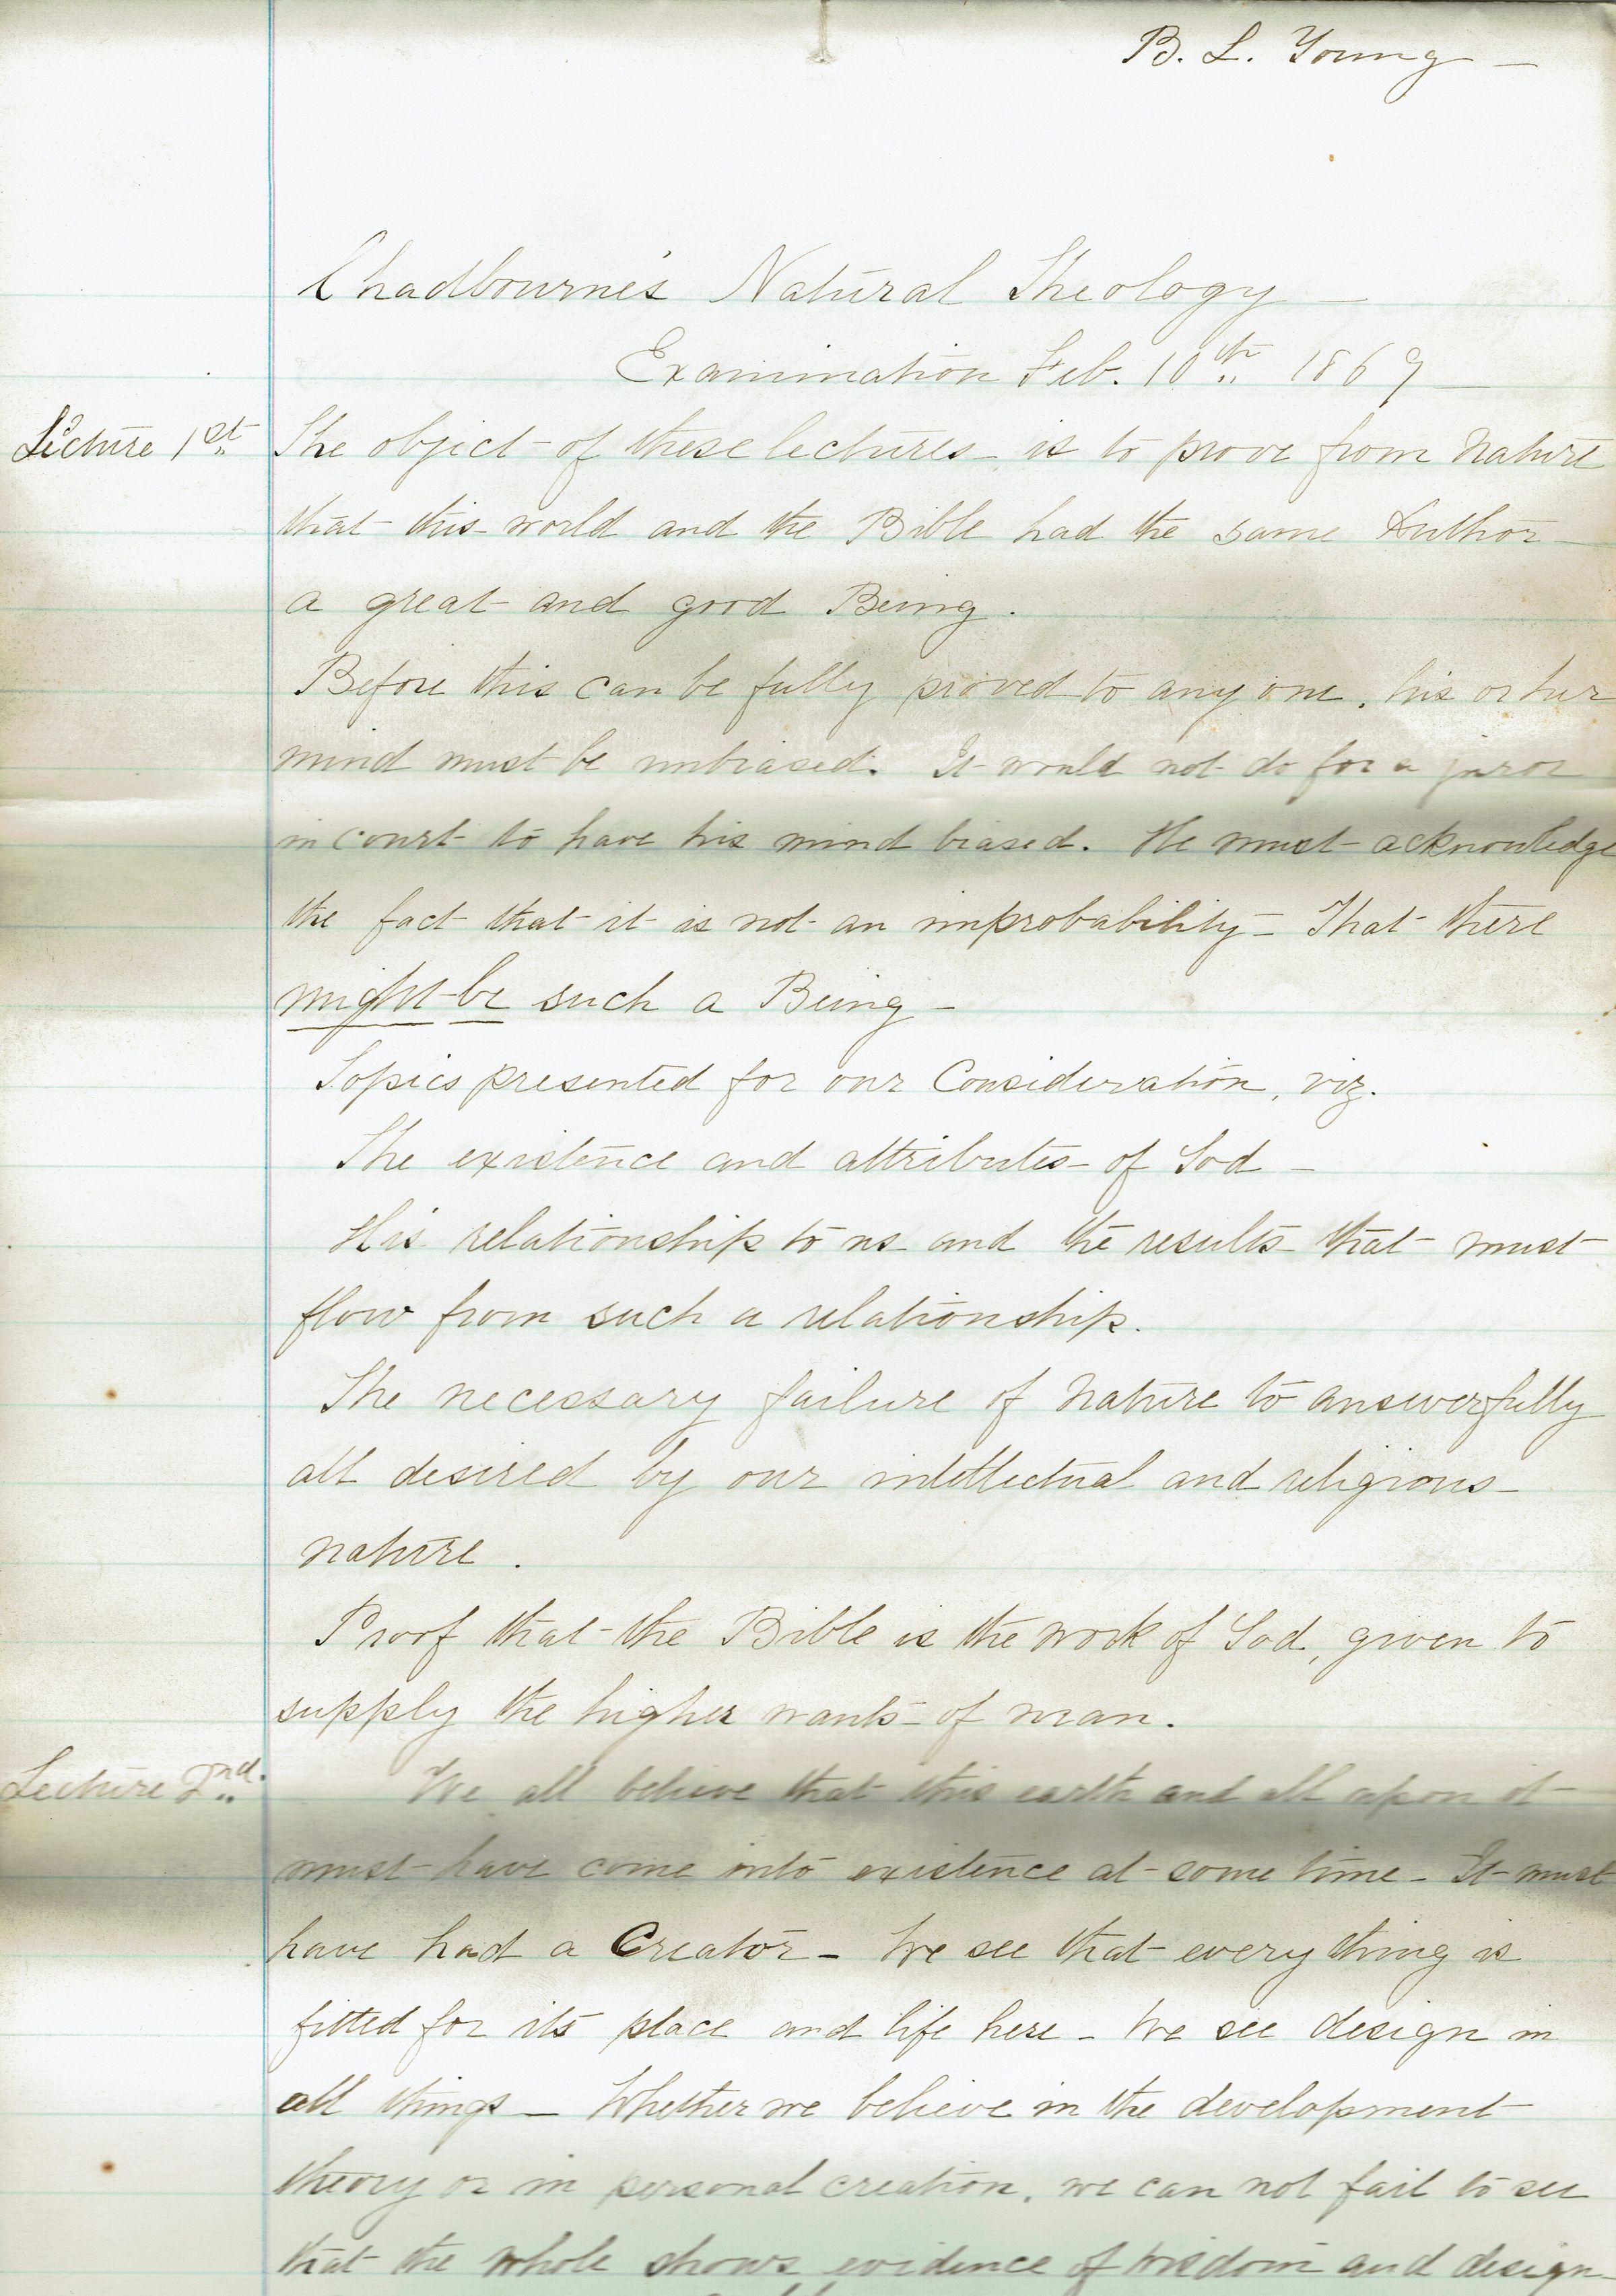 B. L. Young –
Chadbourne's Natural Theology –
Examination Feb. 10th 1869
Lecture 1st The object of these lectures is to prove from Nature
that this world and the Bible had the same Author
a great and good Being.
Before this can be fully proved to any one, his or her
mind must be unbiased. It would not do for a juror
in court to have his mind biased. He must acknowledge
the fact that it is not an improbability – That there
might be such a Being –
Topics presented for our Consideration, viz.
The existence and attributes of God –
His relationship to us and the results that must
flow from such a relationship.
The necessary failure of Nature to answer fully
all desired by our intellectual and religious
nature.
Proof that the Bible is the work of God, given to
supply the higher wants of man.
Lecture 2nd. We all believe that this earth and all upon it
must have come into existence at some time – It must
have had a Creator – We see that every thing is
fitted for its place and life here – We see design in
all things – Whether we believe in the development
theory or in personal creation, we can not fail to see
that the whole shows evidence of wisdom and design –